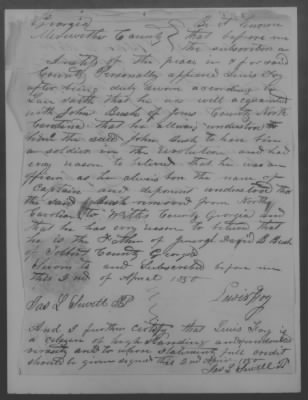 Georgia Be it known
Meriwether County that before me
the subscriber a
Justice of the peace in & for said
County Personally appeared Lewis Foy
after being duly sworn according to
Law saith that he was well acquainted
with John Bush of Jones County North
Carolina that he always understood
the said John Bush to have been
a soldier in the Revolution and had
every reason to believe that he was an
officer as he always bore the name of
Captain and deponent understood that
the said Bush removed from North
Carolina to Wilkes County Georgia and
that he has every reason to believe that
he is the Father of General David B Bush
of Talbot County Georgia
Sworn to and Subscribed before me
this 2nd of April 1850
Jas L Sewell JP Lewis Foy
And I further certify that Lewis Foy is
a citizen of high standing and
veracity and to whose statement full credit
should be given signed this 2nd April 1850
Jas L Sewell JP